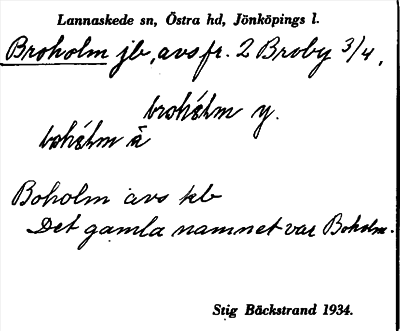 Lannaskede sn, Östra hd, Jönköpings l.
Broholm jb, avs fr. 2 Broby 3/4,
brohélm y.
bohélm ä
Boholm avs kb
Det gamla namnet var Boholm.
Stig Bäckstrand 1934.